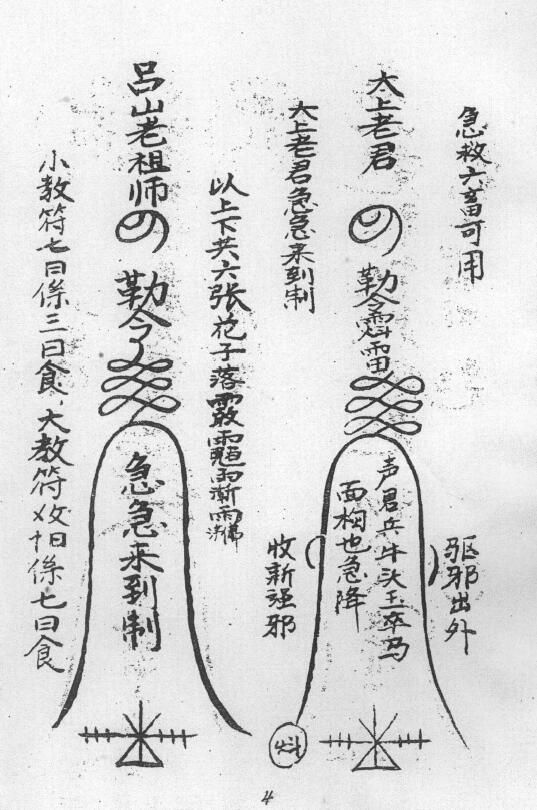 急救六畜可用
太上老君
勅令
雷
声君兵牛头玉卒马
面相也急降
驱邪出外
收新强邪
六上老君急急来到制
以上下共六张花子落
吕山老祖师
勅令
急急来到制
小教符七日條三日食大教符
條七日食
4